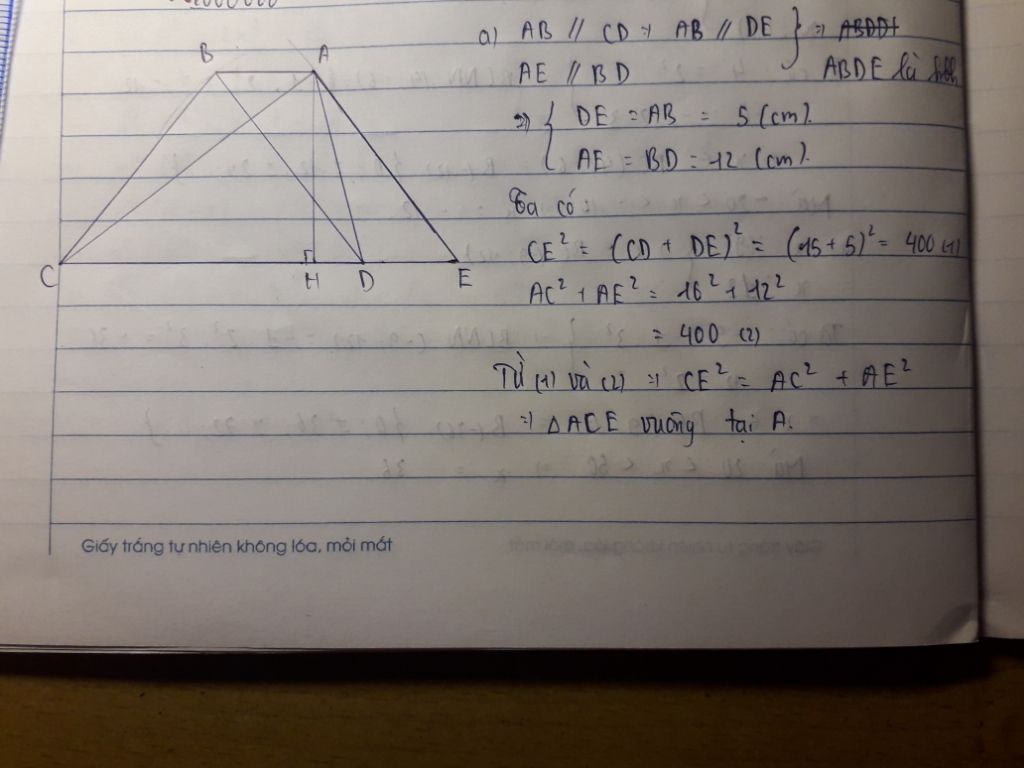 B A
C H D E
a) AB // CD ⇒ AB // DE } ⇒ ABDD+
AE // BD ABDE là hbh
⇒ { DE = AB = 5 (cm).
AE = BD = 12 (cm).
Ta có
CE² = (CD + DE)² = (15 + 5)² = 400 (1)
AC² + AE² = 16² + 12²
= 400 (2)
Từ (1) và (2) ⇒ CE² = AC² + AE²
⇒ △ACE vuông tại A.
Giấy trắng tự nhiên không lóa, mỏi mắt